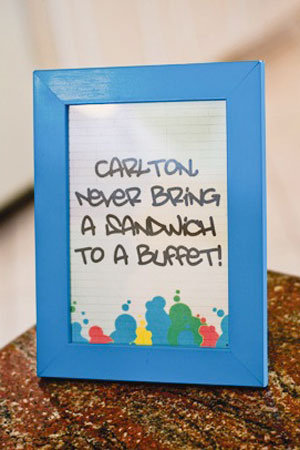 CARLTON,
NEVER BRING
A SANDWICH
TO A BUFFET!